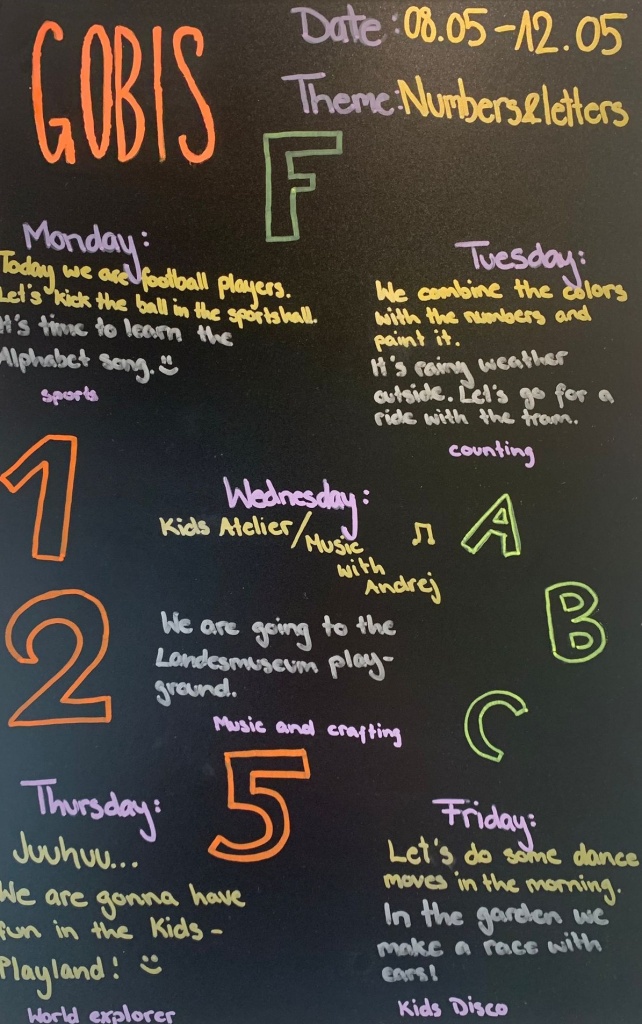 GOBIS
Date: 08.05-12.05
Theme: Numbers&letters
F
Monday:
Today we are football players.
Let's kick the ball in the sportshall.
It's time to learn the
Alphabet song.
sports
Tuesday:
We combine the colors
with the numbers and
paint it.
It's rainy weather
outside. Let's go for a
ride with the tram.
counting
1
Wednesday:
Kids Atelier/Music
with
Andrej
A
B
2
We are going to the
Landesmuseum play-
ground.
Music and crafting
C
5
Thursday:
Juuhuu...
We are gonna have
fun in the Kids-
Playland!
World explorer
Friday:
Let's do some dance
moves in the morning.
In the garden we
make a race with
cars!
Kids Disco